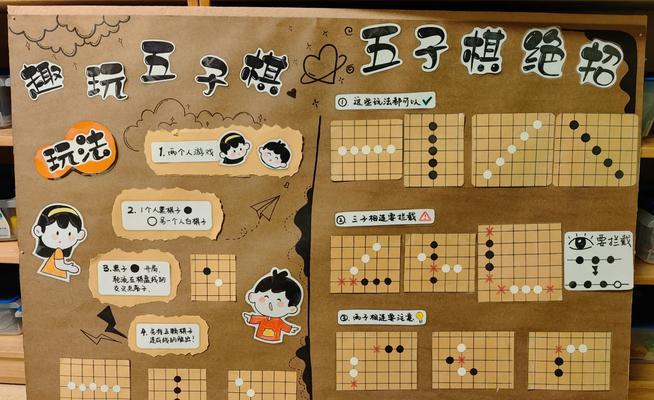 趣玩五子棋
玩法
1.两个人游戏
2.1个人黑棋子
另一个人白棋子
3.黑子 开局,
轮流在棋盘线的
交叉点落子.
4.先将五颗棋子
连成线的胜出!
五子棋绝招
① 这些玩法都可以
② 三子相连要拦截
要拦截
③ 两子相连要注意